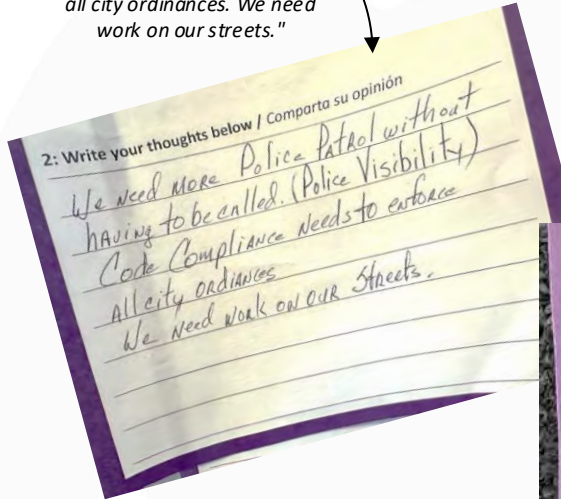 all city ordinances. We need
work on our streets."
2: Write your thoughts below / Comparta su opinión
We Need More Police Patrol without
having to be called. (Police Visibility)
Code Compliance Needs to enforce
All city ordiances
We Need Work on our Streets.